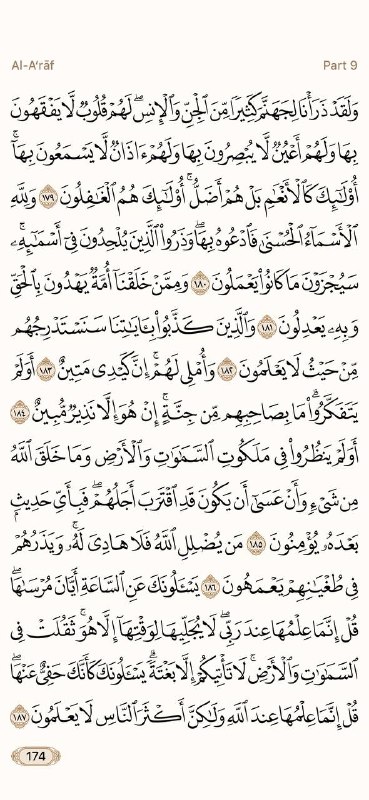 Al-A'rāf
Part 9
وَلَقَدْ ذَرَأْنَا لِجَهَنَّمَ كَثِيرًا مِّنَ ٱلْجِنِّ وَٱلْإِنسِ ۖ لَهُمْ قُلُوبٌ لَّا يَفْقَهُونَ
بِهَا وَلَهُمْ أَعْيُنٌ لَّا يُبْصِرُونَ بِهَا وَلَهُمْ ءَاذَانٌ لَّا يَسْمَعُونَ بِهَآ ۚ
أُو۟لَـٰٓئِكَ كَٱلْأَنْعَـٰمِ بَلْ هُمْ أَضَلُّ ۚ أُو۟لَـٰٓئِكَ هُمُ ٱلْغَـٰفِلُونَ ١٧٩ وَلِلَّهِ
ٱلْأَسْمَآءُ ٱلْحُسْنَىٰ فَٱدْعُوهُ بِهَا ۖ وَذَرُوا۟ ٱلَّذِينَ يُلْحِدُونَ فِىٓ أَسْمَـٰٓئِهِۦ ۚ
سَيُجْزَوْنَ مَا كَانُوا۟ يَعْمَلُونَ ١٨٠ وَمِمَّنْ خَلَقْنَآ أُمَّةٌ يَهْدُونَ بِٱلْحَقِّ
وَبِهِۦ يَعْدِلُونَ ١٨١ وَٱلَّذِينَ كَذَّبُوا۟ بِـَٔايَـٰتِنَا سَنَسْتَدْرِجُهُم
مِّنْ حَيْثُ لَا يَعْلَمُونَ ١٨٢ وَأُمْلِى لَهُمْ ۚ إِنَّ كَيْدِى مَتِينٌ ١٨٣ أَوَلَمْ
يَتَفَكَّرُوا۟ ۗ مَا بِصَاحِبِهِم مِّن جِنَّةٍ ۚ إِنْ هُوَ إِلَّا نَذِيرٌ مُّبِينٌ ١٨٤
أَوَلَمْ يَنظُرُوا۟ فِى مَلَكُوتِ ٱلسَّمَـٰوَٰتِ وَٱلْأَرْضِ وَمَا خَلَقَ ٱللَّهُ
مِن شَىْءٍ وَأَنْ عَسَىٰٓ أَن يَكُونَ قَدِ ٱقْتَرَبَ أَجَلُهُمْ ۖ فَبِأَىِّ حَدِيثٍۭ
بَعْدَهُۥ يُؤْمِنُونَ ١٨٥ مَن يُضْلِلِ ٱللَّهُ فَلَا هَادِىَ لَهُۥ ۚ وَيَذَرُهُمْ
فِى طُغْيَـٰنِهِمْ يَعْمَهُونَ ١٨٦ يَسْـَٔلُونَكَ عَنِ ٱلسَّاعَةِ أَيَّانَ مُرْسَىٰهَا ۖ
قُلْ إِنَّمَا عِلْمُهَا عِندَ رَبِّى ۖ لَا يُجَلِّيهَا لِوَقْتِهَآ إِلَّا هُوَ ۚ ثَقُلَتْ فِى
ٱلسَّمَـٰوَٰتِ وَٱلْأَرْضِ ۚ لَا تَأْتِيكُمْ إِلَّا بَغْتَةً ۗ يَسْـَٔلُونَكَ كَأَنَّكَ حَفِىٌّ عَنْهَا ۖ
قُلْ إِنَّمَا عِلْمُهَا عِندَ ٱللَّهِ وَلَـٰكِنَّ أَكْثَرَ ٱلنَّاسِ لَا يَعْلَمُونَ ١٨٧
174